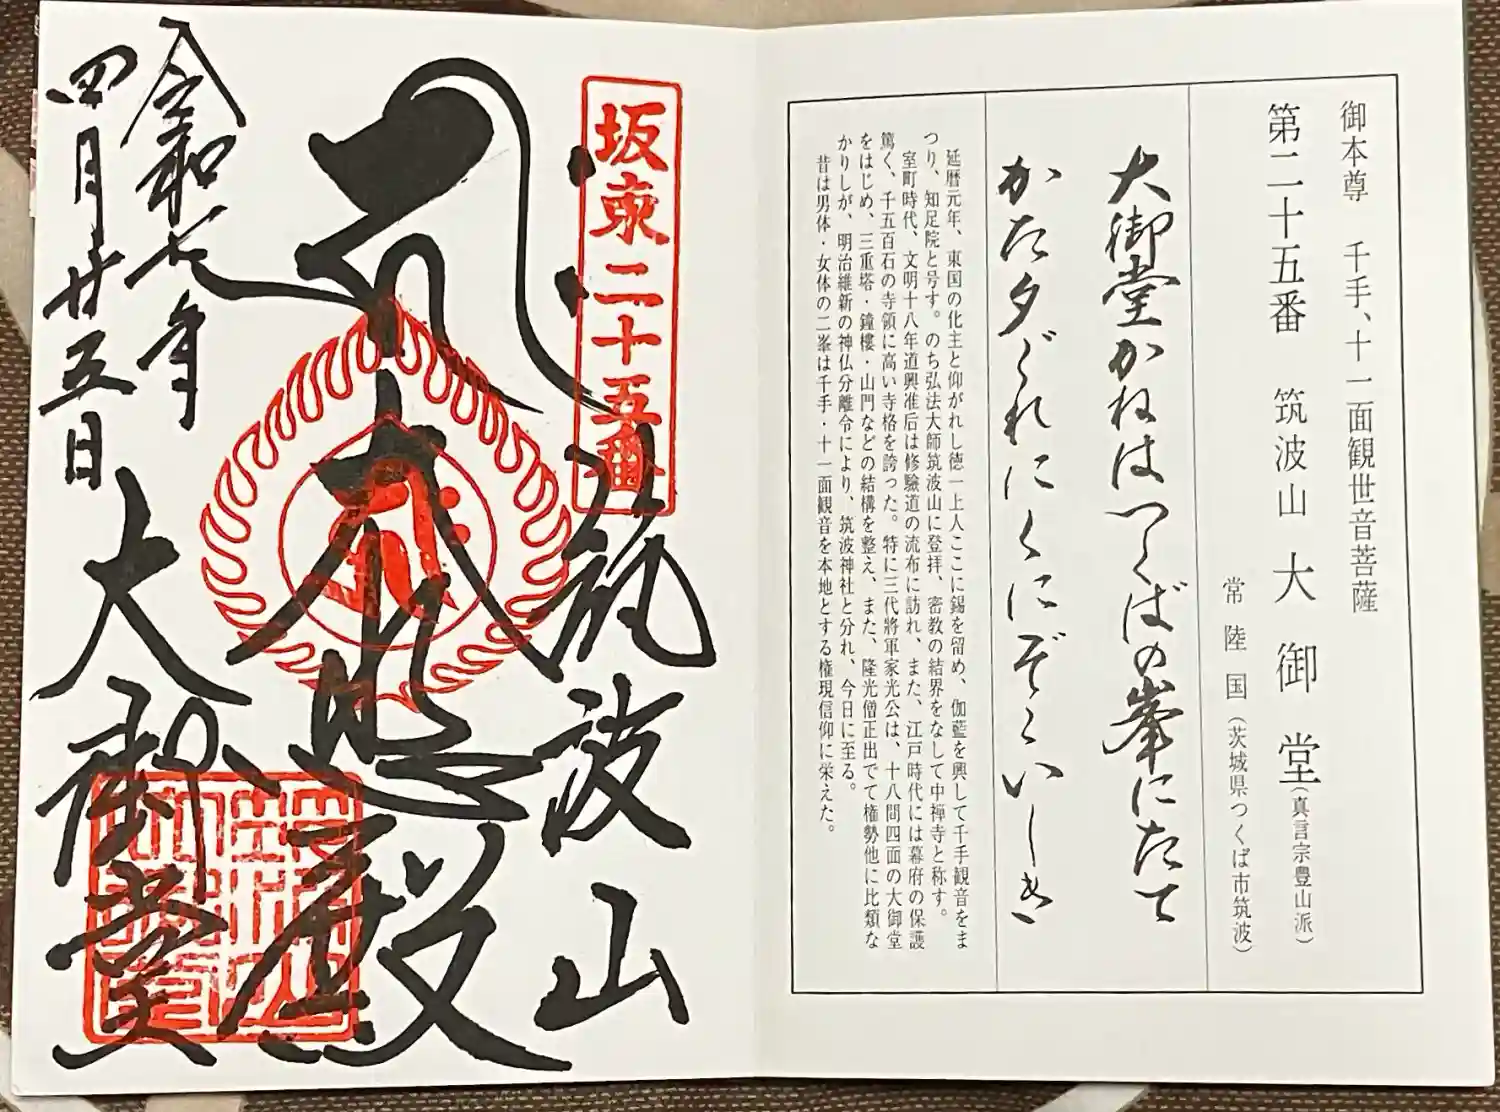 御本尊 千手、十一面観世音菩薩
第二十五番 筑波山 大御堂(真言宗豊山派)
常陸国(茨城県つくば市筑波)
大御堂かねはつくばの峯にたて
かた夕ぐれにくにぞこいしき
延暦元年、東国の化主と仰がれし徳一上人ここに錫を留め、伽藍を興して千手観音をま
つり、知足院と号す。のち弘法大師筑波山に登拝、密教の結界をなして中禅寺と称す。
室町時代、文明十八年道興准后は修驗道の流布に訪れ、また、江戸時代には幕府の保護
篤く、千五百石の寺領に高い寺格を誇った。特に三代將軍家光公は、十八間四面の大御堂
をはじめ、三重塔・鐘樓・山門などの結構を整え、また、隆光僧正出でて権勢他に比類な
かりしが、明治維新の神仏分離令により、筑波神社と分れ、今日に至る。
昔は男体・女体の二峯は千手・十一面観音を本地とする権現信仰に栄えた。
坂東二十五番
筑波山
大悲殿
令和七年
四月廿五日
大御堂